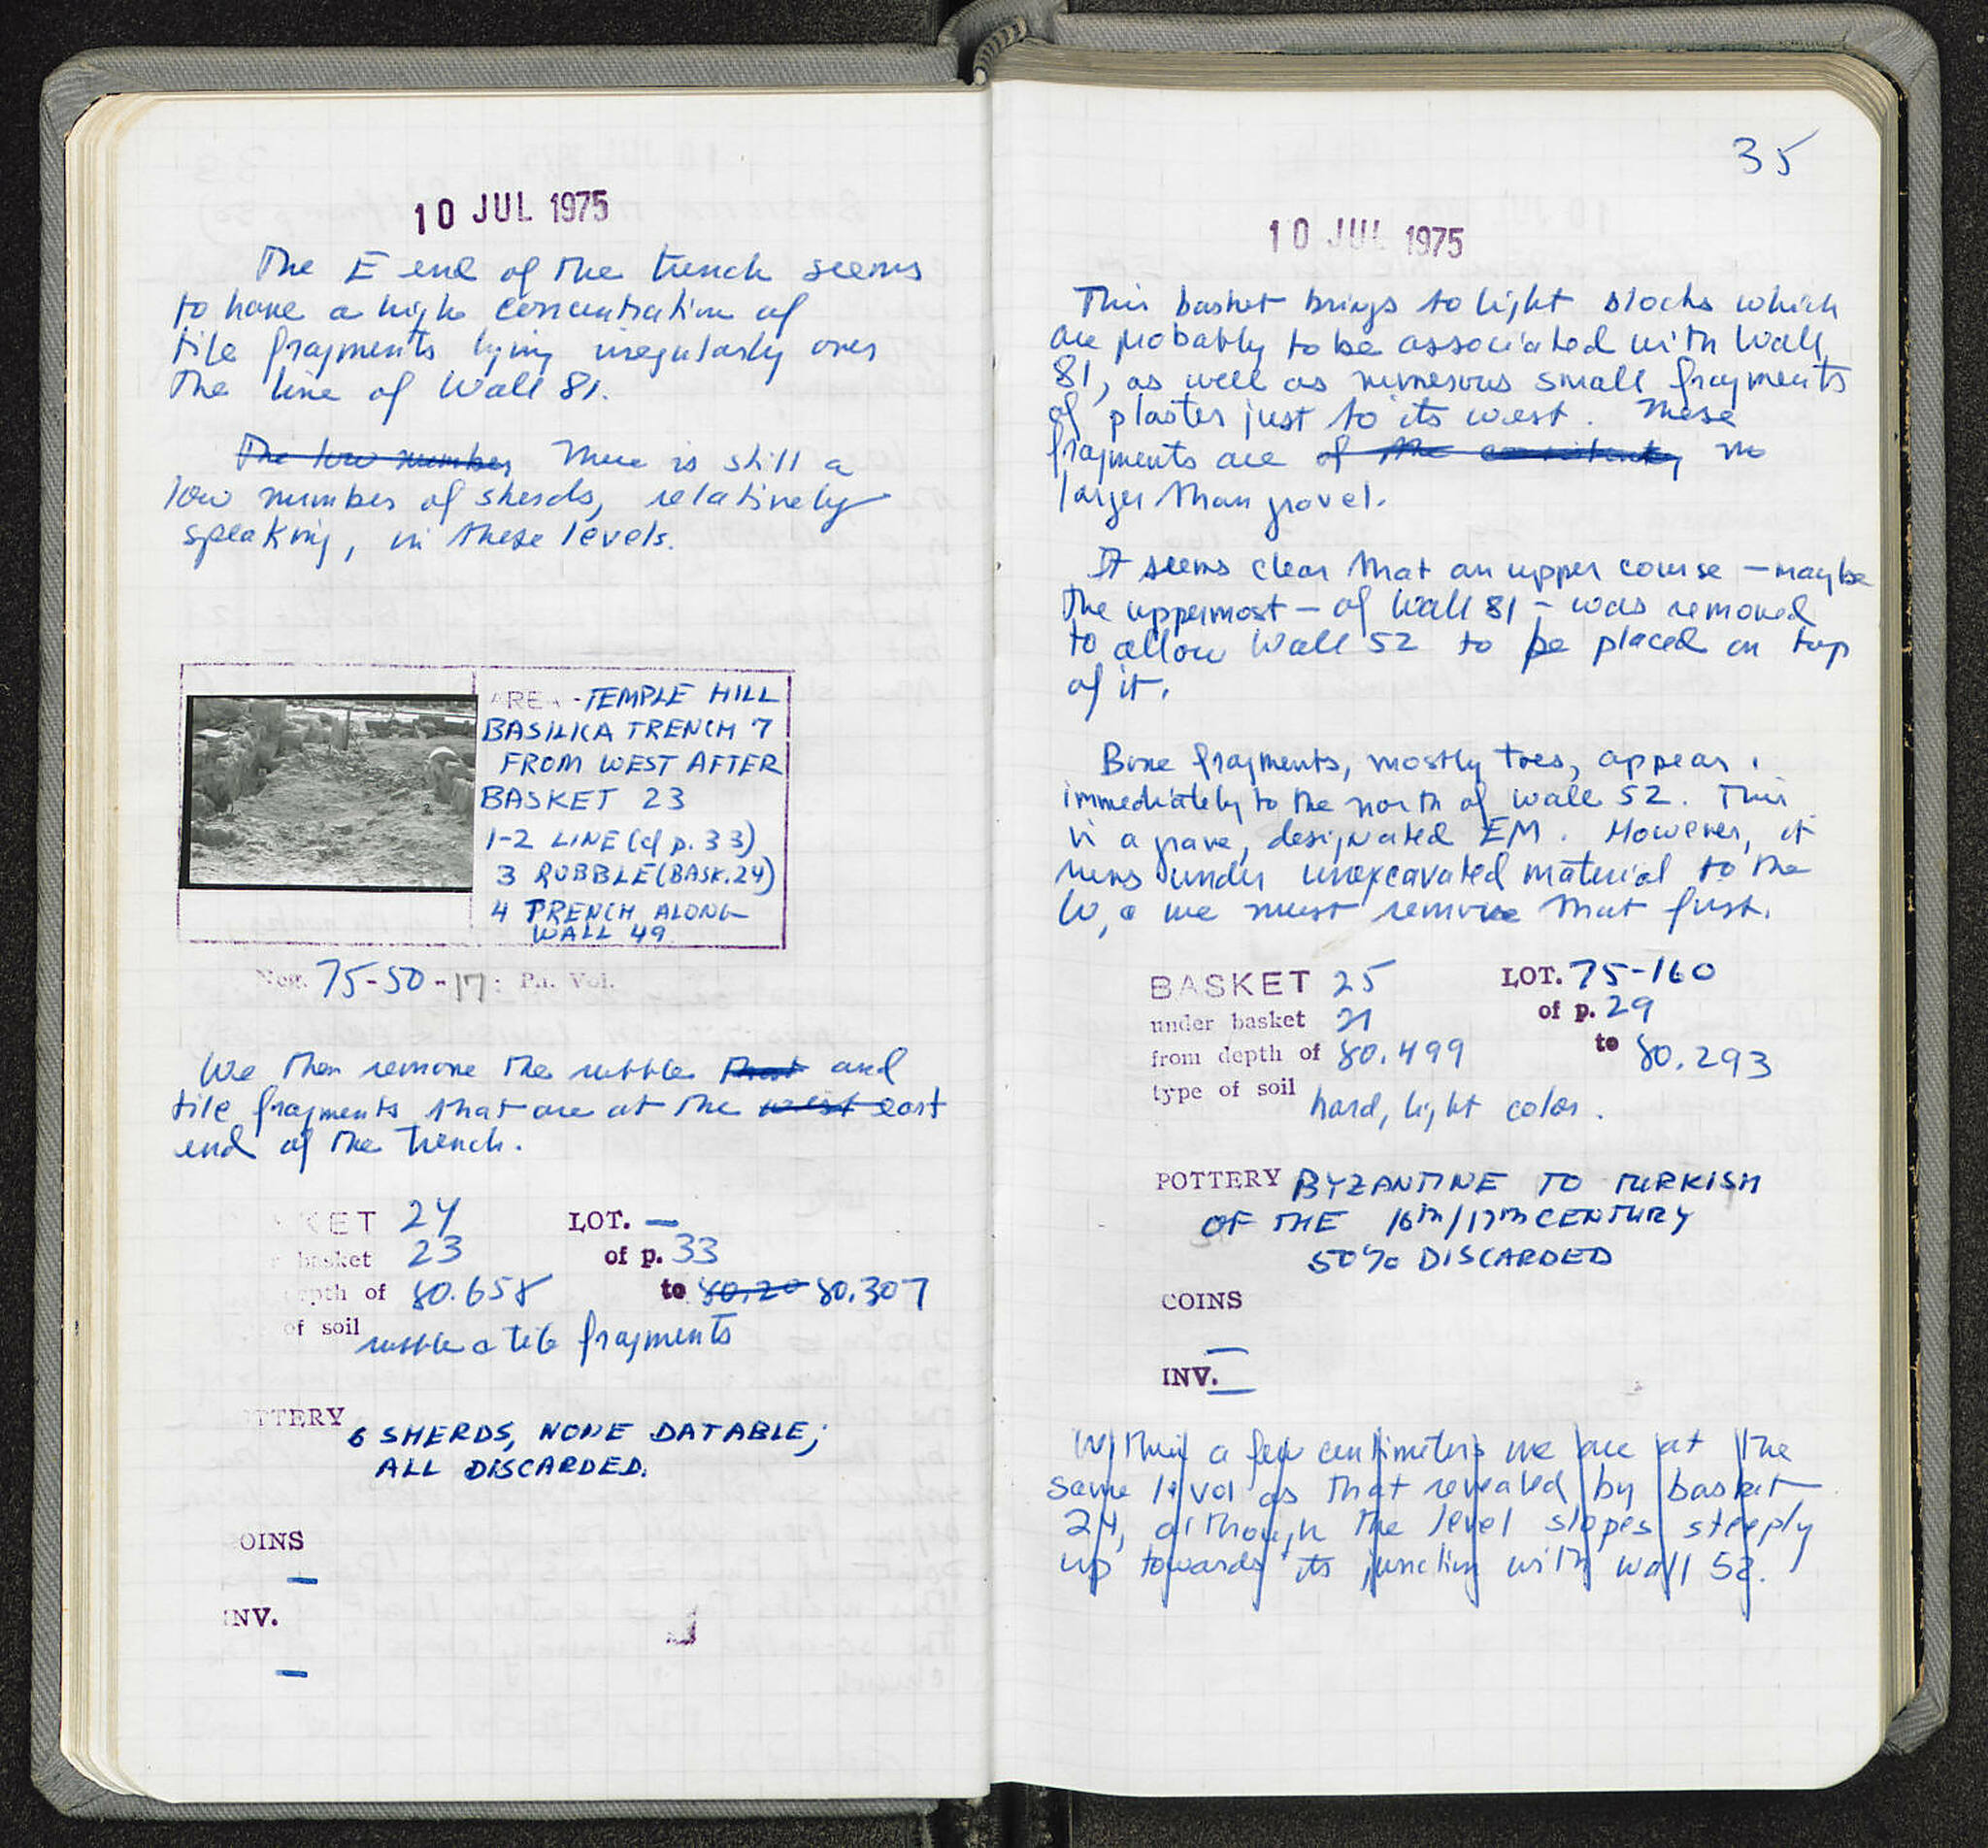 10 JUL 1975
The E end of the trench seems
to have a high concentration of
tile fragments lying irregularly over
the line of Wall 81.
The low number, There is still a
low number of sherds, relatively
speaking, in these levels.
AREA - TEMPLE HILL
BASILICA TRENCH 7
FROM WEST AFTER
BASKET 23
1-2 LINE (cf p. 33)
3 RUBBLE (BASK. 24)
4 TRENCH ALONG
WALL 49
Neg. 75-50-17: P.i. Vol.
We then remove the rubble and
tile fragments that are at the west east
end of the trench.
KET 24 LOT. —
r basket 23 of p. 33
epth of 80.658 to 80.20 80.307
of soil rubble & tile fragments
TTERY 6 SHERDS, NONE DATABLE;
ALL DISCARDED.
OINS
—
INV.
—
35
10 JUL 1975
This basket brings to light blocks which
are probably to be associated with Wall
81, as well as numerous small fragments
of plaster just to its west. These
fragments are of the consistency no
larger than gravel.
It seems clear that an upper course - maybe
the uppermost - of Wall 81 - was removed
to allow Wall 52 to be placed on top
of it.
Bone fragments, mostly toes, appear
immediately to the north of wall 52. This
is a grave, designated EM. However, it
runs under unexcavated material to the
W, & we must remove that first.
BASKET 25 LOT. 75-160
under basket 21 of p. 29
from depth of 80.499 to 80.293
type of soil hard, light color.
POTTERY BYZANTINE TO TURKISH
OF THE 16th/17th CENTURY
50% DISCARDED
COINS
—
INV.
—
Within a few centimeters we are at the
same level as that revealed by basket
24, although the level slopes steeply
up towards its junction with wall 52.